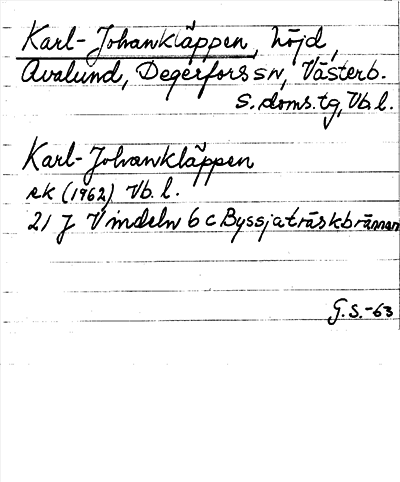 Karl-Johankläppen, höjd,
Avalund, Degerfors sn, Västerb.
S. doms. tg, Vb. l.
Karl-Johankläppen
ek (1962) Vb. l.
21 J Vindeln 6 c Byssjaträskbrännan
G. S. -63